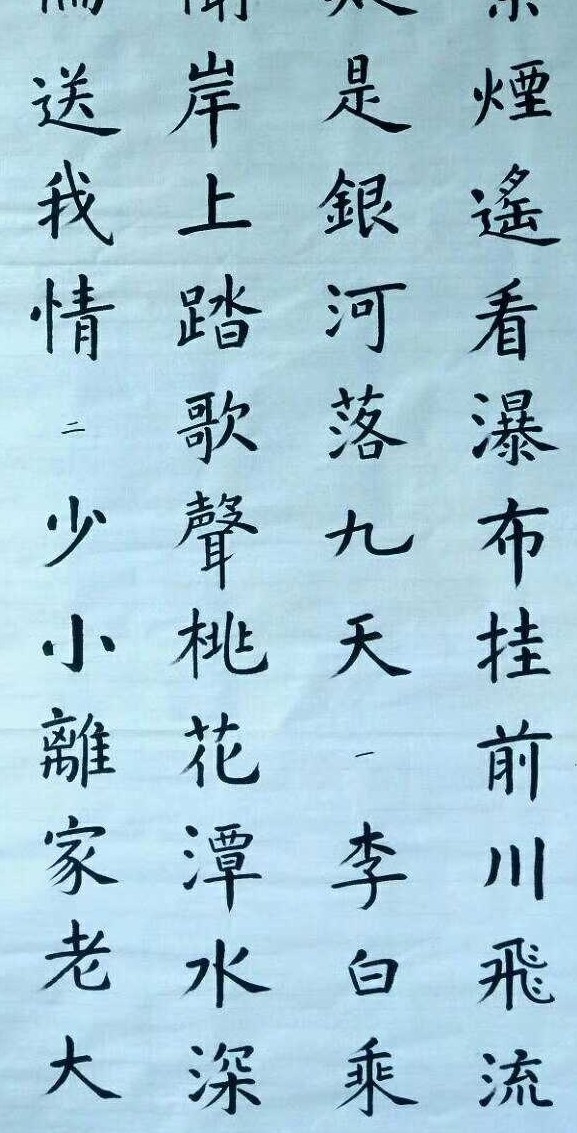 煙遙看瀑布挂前川飛流
是銀河落九天一李白乘
岸上踏歌聲桃花潭水深
送我情二少小離家老大